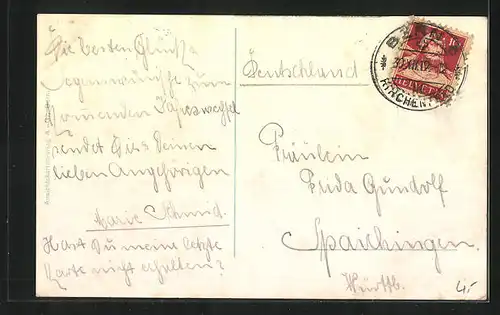 Die besten Glücks
Segenswünsche zum
kommenden Jahreswechsel
sendet Dir & Deinen
lieben Angehörigen
Marie Schmid.
Hast Du meine letzte
Karte nicht erhalten?
Deutschland
Fräulein
Frida Gundolf
Spaichingen.
Württb.
HELVETIA
4.-